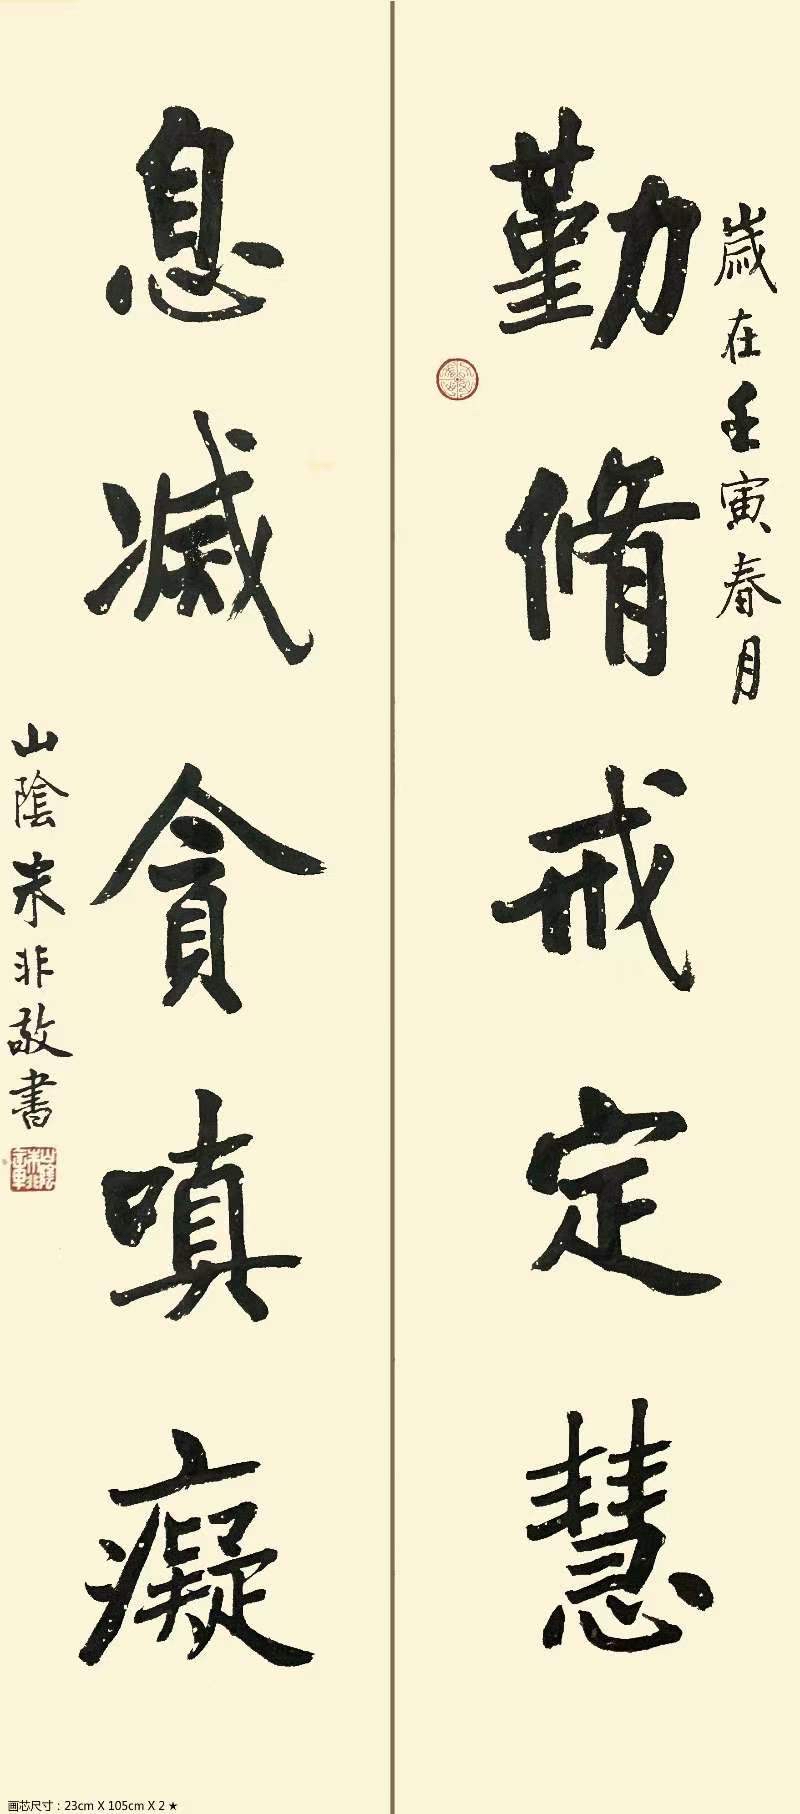 歲在壬寅春月
勤脩戒定慧
息滅貪嗔癡
山陰朱非敬書
画芯尺寸：23cm X 105cm X 2 ★